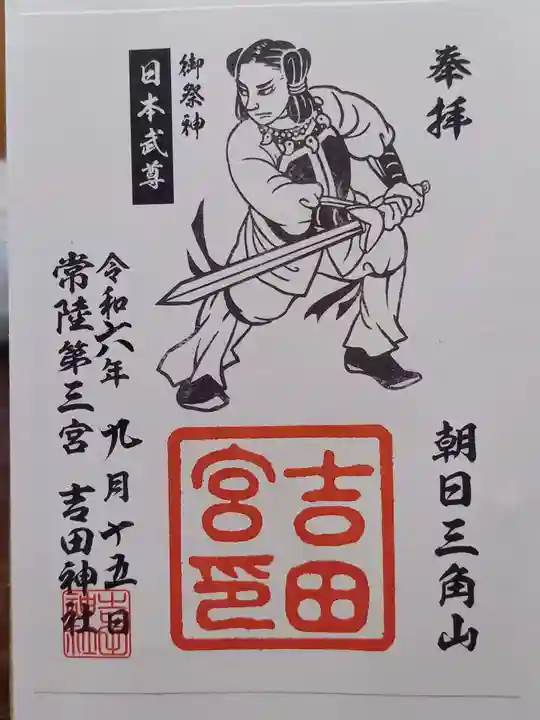 奉拝
朝日三角山
御祭神
日本武尊
吉田
宮印
令和六年 九月十五日
常陸第三宮 吉田神社